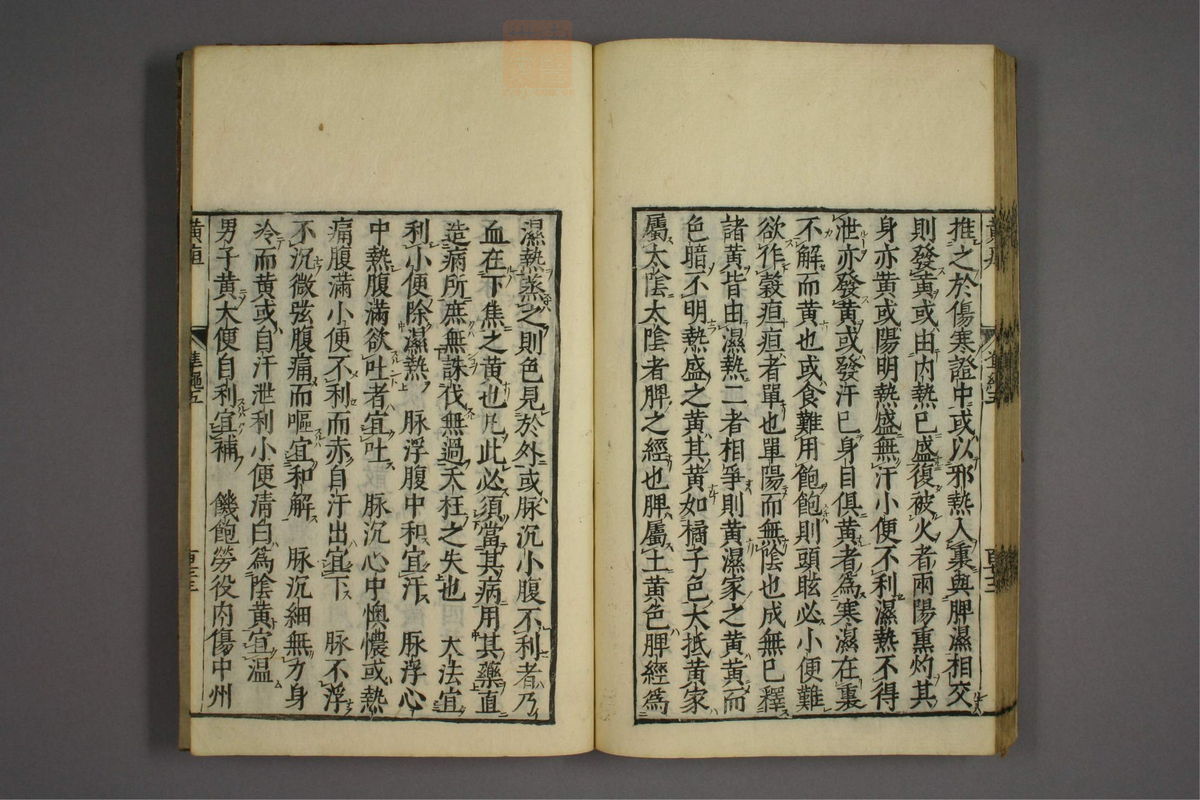 推之於傷寒證中或以邪熱入裏與脾濕相交
則發黃或由內熱已盛復被火者兩陽熏灼其
身亦黃或陽明熱盛無汗小便不利濕熱不得
泄亦發黃或發汗已身目俱黃者為寒濕在裏
不解而黃也或食難用飽飽則頭眩必小便難
欲作穀疸疸者單也單陽而無陰也成無已釋
諸黃皆由濕熱二者相爭則黃濕家之黃黃而
色暗不明熱盛之黃其黃如橘子色大抵黃家
屬太陰太陰者脾之經也脾屬土黃色脾經為
濕熱蒸之則色見於外或脉沉小腹不利者乃
血在下焦之黃也凡此必須當其病用其藥直
造病所庶無誅伐無過夭枉之失也　大法宜
利小便除濕熱　脉浮腹中和宜汗　脉浮心
中熱腹滿欲吐者宜吐　脉沉心中懊憹或熱
痛腹滿小便不利而赤自汗出宜下　脉不浮
不沉微弦腹痛而嘔宜和解　脉沉細無力身
冷而黃或自汗泄利小便清白為陰黃宜溫
男子黃大便自利宜補　饑飽勞役內傷中州
黃疸